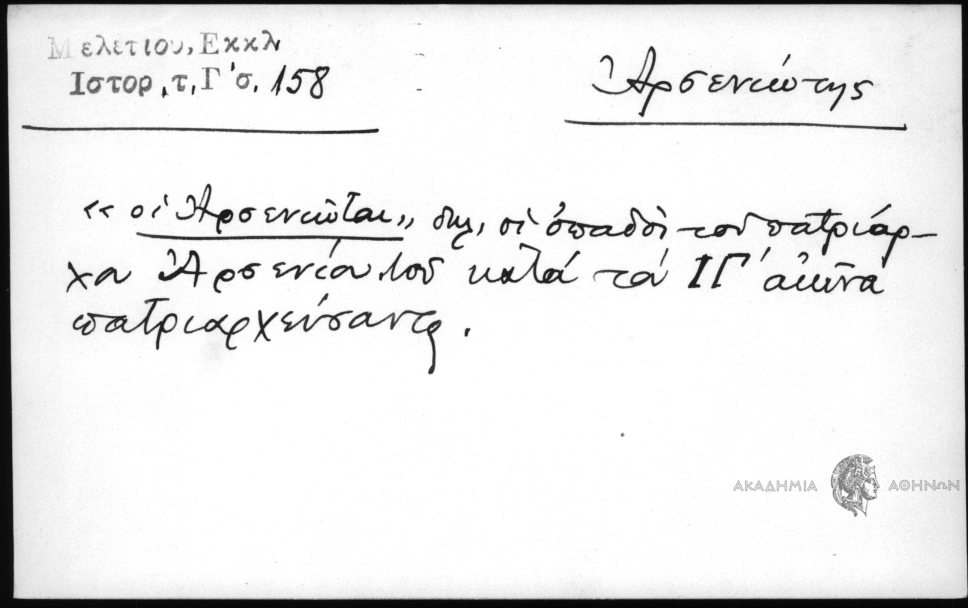 Μελετίου, Εκκλ
Ιστορ, τ, Γ´σ. 158
Ἀρσενιώτης
«οἱ Ἀρσενιῶται» δηλ, οἱ ὀπαδοὶ τοῦ πατριάρ-
χα Ἀρσενίου τοῦ κατά τό ΙΓ´ αἰῶνα
πατριαρχεύσαντος.
ΑΚΑΔΗΜΙΑ ΑΘΗΝΩΝ